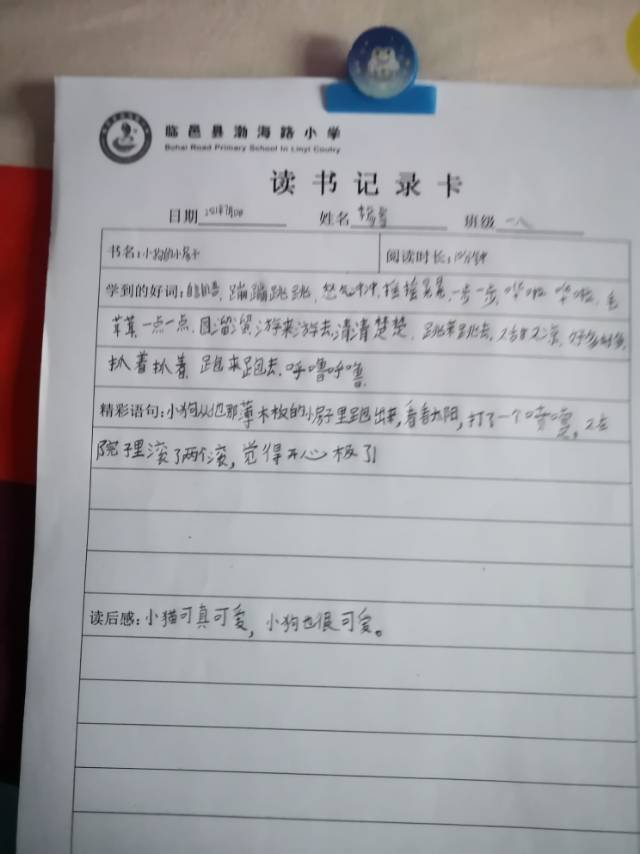 临邑县渤海路小学
Bohai Road Primary School in Linyi Coutry
读书记录卡
日期 姓名 班级
书名:小狗的小房子 阅读时长:10分钟
学到的好词: 蹦蹦跳跳, 怒气冲冲, 摇摇晃晃, 一步一步, 哗啦哗啦, 毛
茸茸, 一点一点, 圆溜溜, 游来游去, 清清楚楚, 跳来跳去,
扒着扒着, 跑来跑去, 呼噜呼噜
精彩语句:小狗从他那薄木板的小房子里跑出来,看看太阳,打了一个喷嚏,又在
院子里滚了两个滚,觉得开心极了!
读后感:小猫可真可爱,小狗也很可爱。